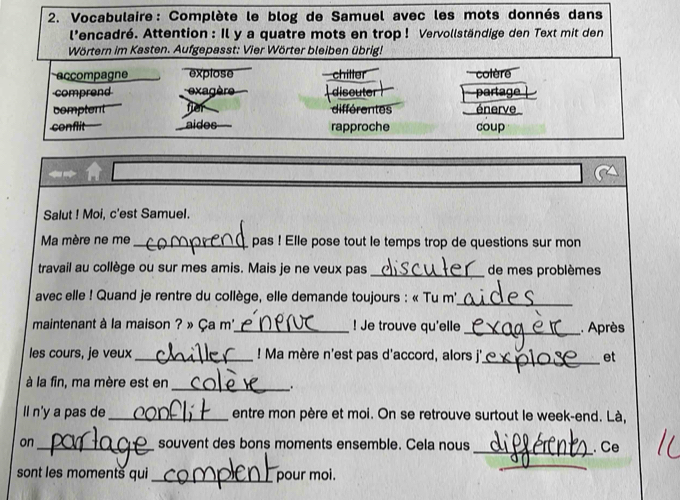 2. Vocabulaire : Complète le blog de Samuel avec les mots donnés dans
l'encadré. Attention : Il y a quatre mots en trop ! Vervollständige den Text mit den
Wörtern im Kasten. Aufgepasst: Vier Wörter bleiben übrig!
accompagne explose chiller colère
comprend exagère discuter partage
comptent fier différentes énerve
conflit aides rapproche coup
Salut ! Moi, c'est Samuel.
Ma mère ne me comprend pas ! Elle pose tout le temps trop de questions sur mon
travail au collège ou sur mes amis. Mais je ne veux pas discuter de mes problèmes
avec elle ! Quand je rentre du collège, elle demande toujours : « Tu m' aides
maintenant à la maison ? » Ça m' énerve ! Je trouve qu'elle exagère. Après
les cours, je veux chiller ! Ma mère n'est pas d'accord, alors j' explose et
à la fin, ma mère est en colère.
Il n'y a pas de conflit entre mon père et moi. On se retrouve surtout le week-end. Là,
on partage souvent des bons moments ensemble. Cela nous différents. Ce
sont les moments qui comptent pour moi.